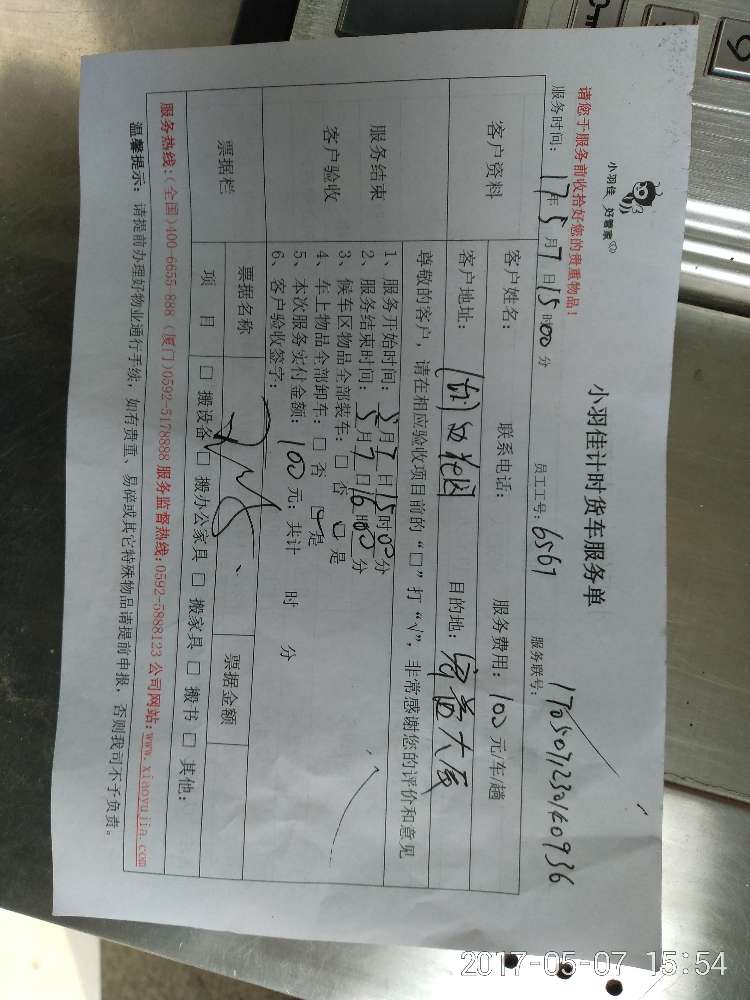 小羽佳 好管家
小羽佳计时货车服务单
请您于服务前收拾好您的贵重物品！
服务时间： 17年 5月 7日 15时 00分 员工工号：6567 服务联号：170507123040936
客户资料 客户姓名： 联系电话： 服务费用：100元/车/趟
客户地址： 目的地： 大厦
尊敬的客户，请在相应验收项目前的“口”打“√”，非常感谢您的评价和意见
服务结束
客户验收
1、服务开始时间：5月7日15时00分
2、服务结束时间：5月7日16时00分
3、候车区物品全部装车：□ 否 □ 是
4、车上物品全部卸车：□ 否 □ 是
5、本次服务实付金额：100元；共计 时 分
6、客户验收签字：
票据栏 票据名称 票据金额
项 目 □ 搬设备 □ 搬办公家具 □ 搬家具 □ 搬书 □ 其他：
服务热线:(全国)400-6655-888 (厦门)0592-5178888 服务监督热线:0592-5888123 公司网站:www.xiaoyujia.com
温馨提示：请提前办理好物业通行手续，如有贵重、易碎或其它特殊物品请提前申报，否则我司不予负责。
2017-05-07 15:54